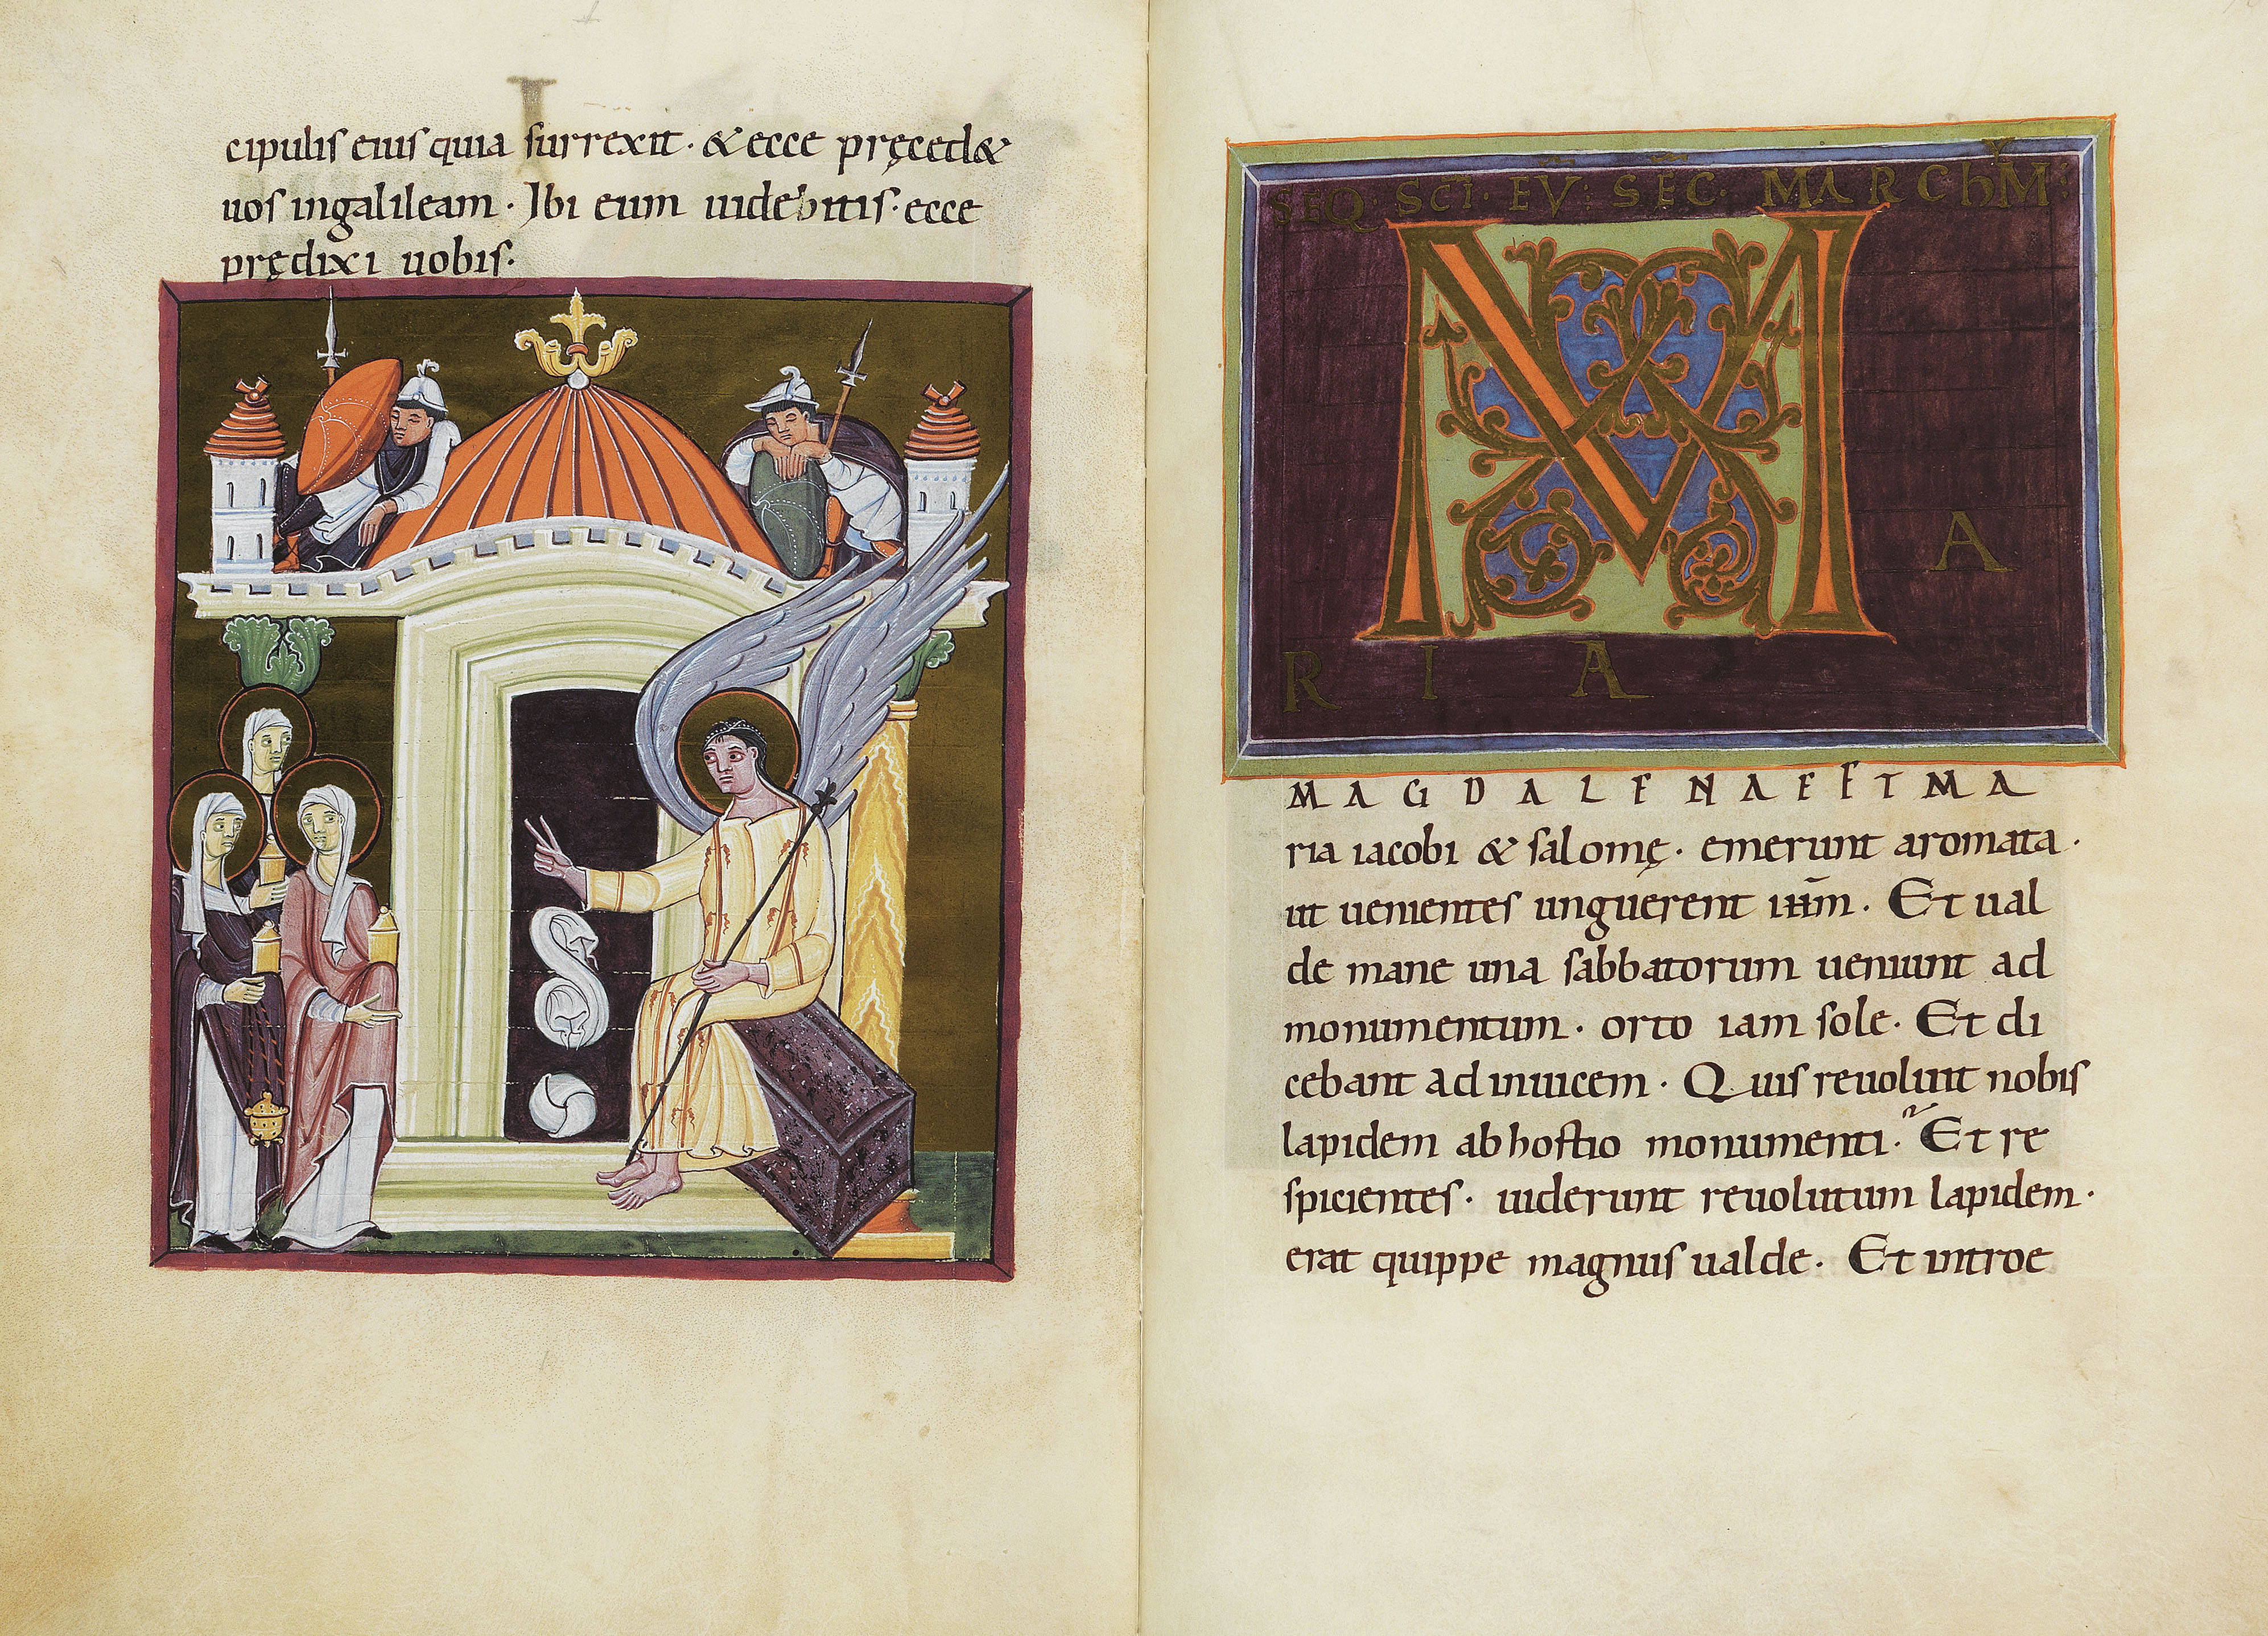 cipulis eius quia surrexit · & ecce pręced&
uos ingalileam · Ibi eum uidebitis · ecce
prędixi uobis ·
SEQ · SCI · EV : SEC · MARChM :
M A
R I A
MAGDALENAEETMA
ria iacobi & salomę · emerunt aromata ·
ut uenientes unguerent ihm̄ · Et ual
de mane una sabbatorum ueniunt ad
monumentum · orto iam sole · Et di
cebant adinuicem · Quis reuoluit nobis
lapidem abhostio monumenti · Et re
spicientes · uiderunt reuolutum lapidem ·
erat quippe magnus ualde · Et introe